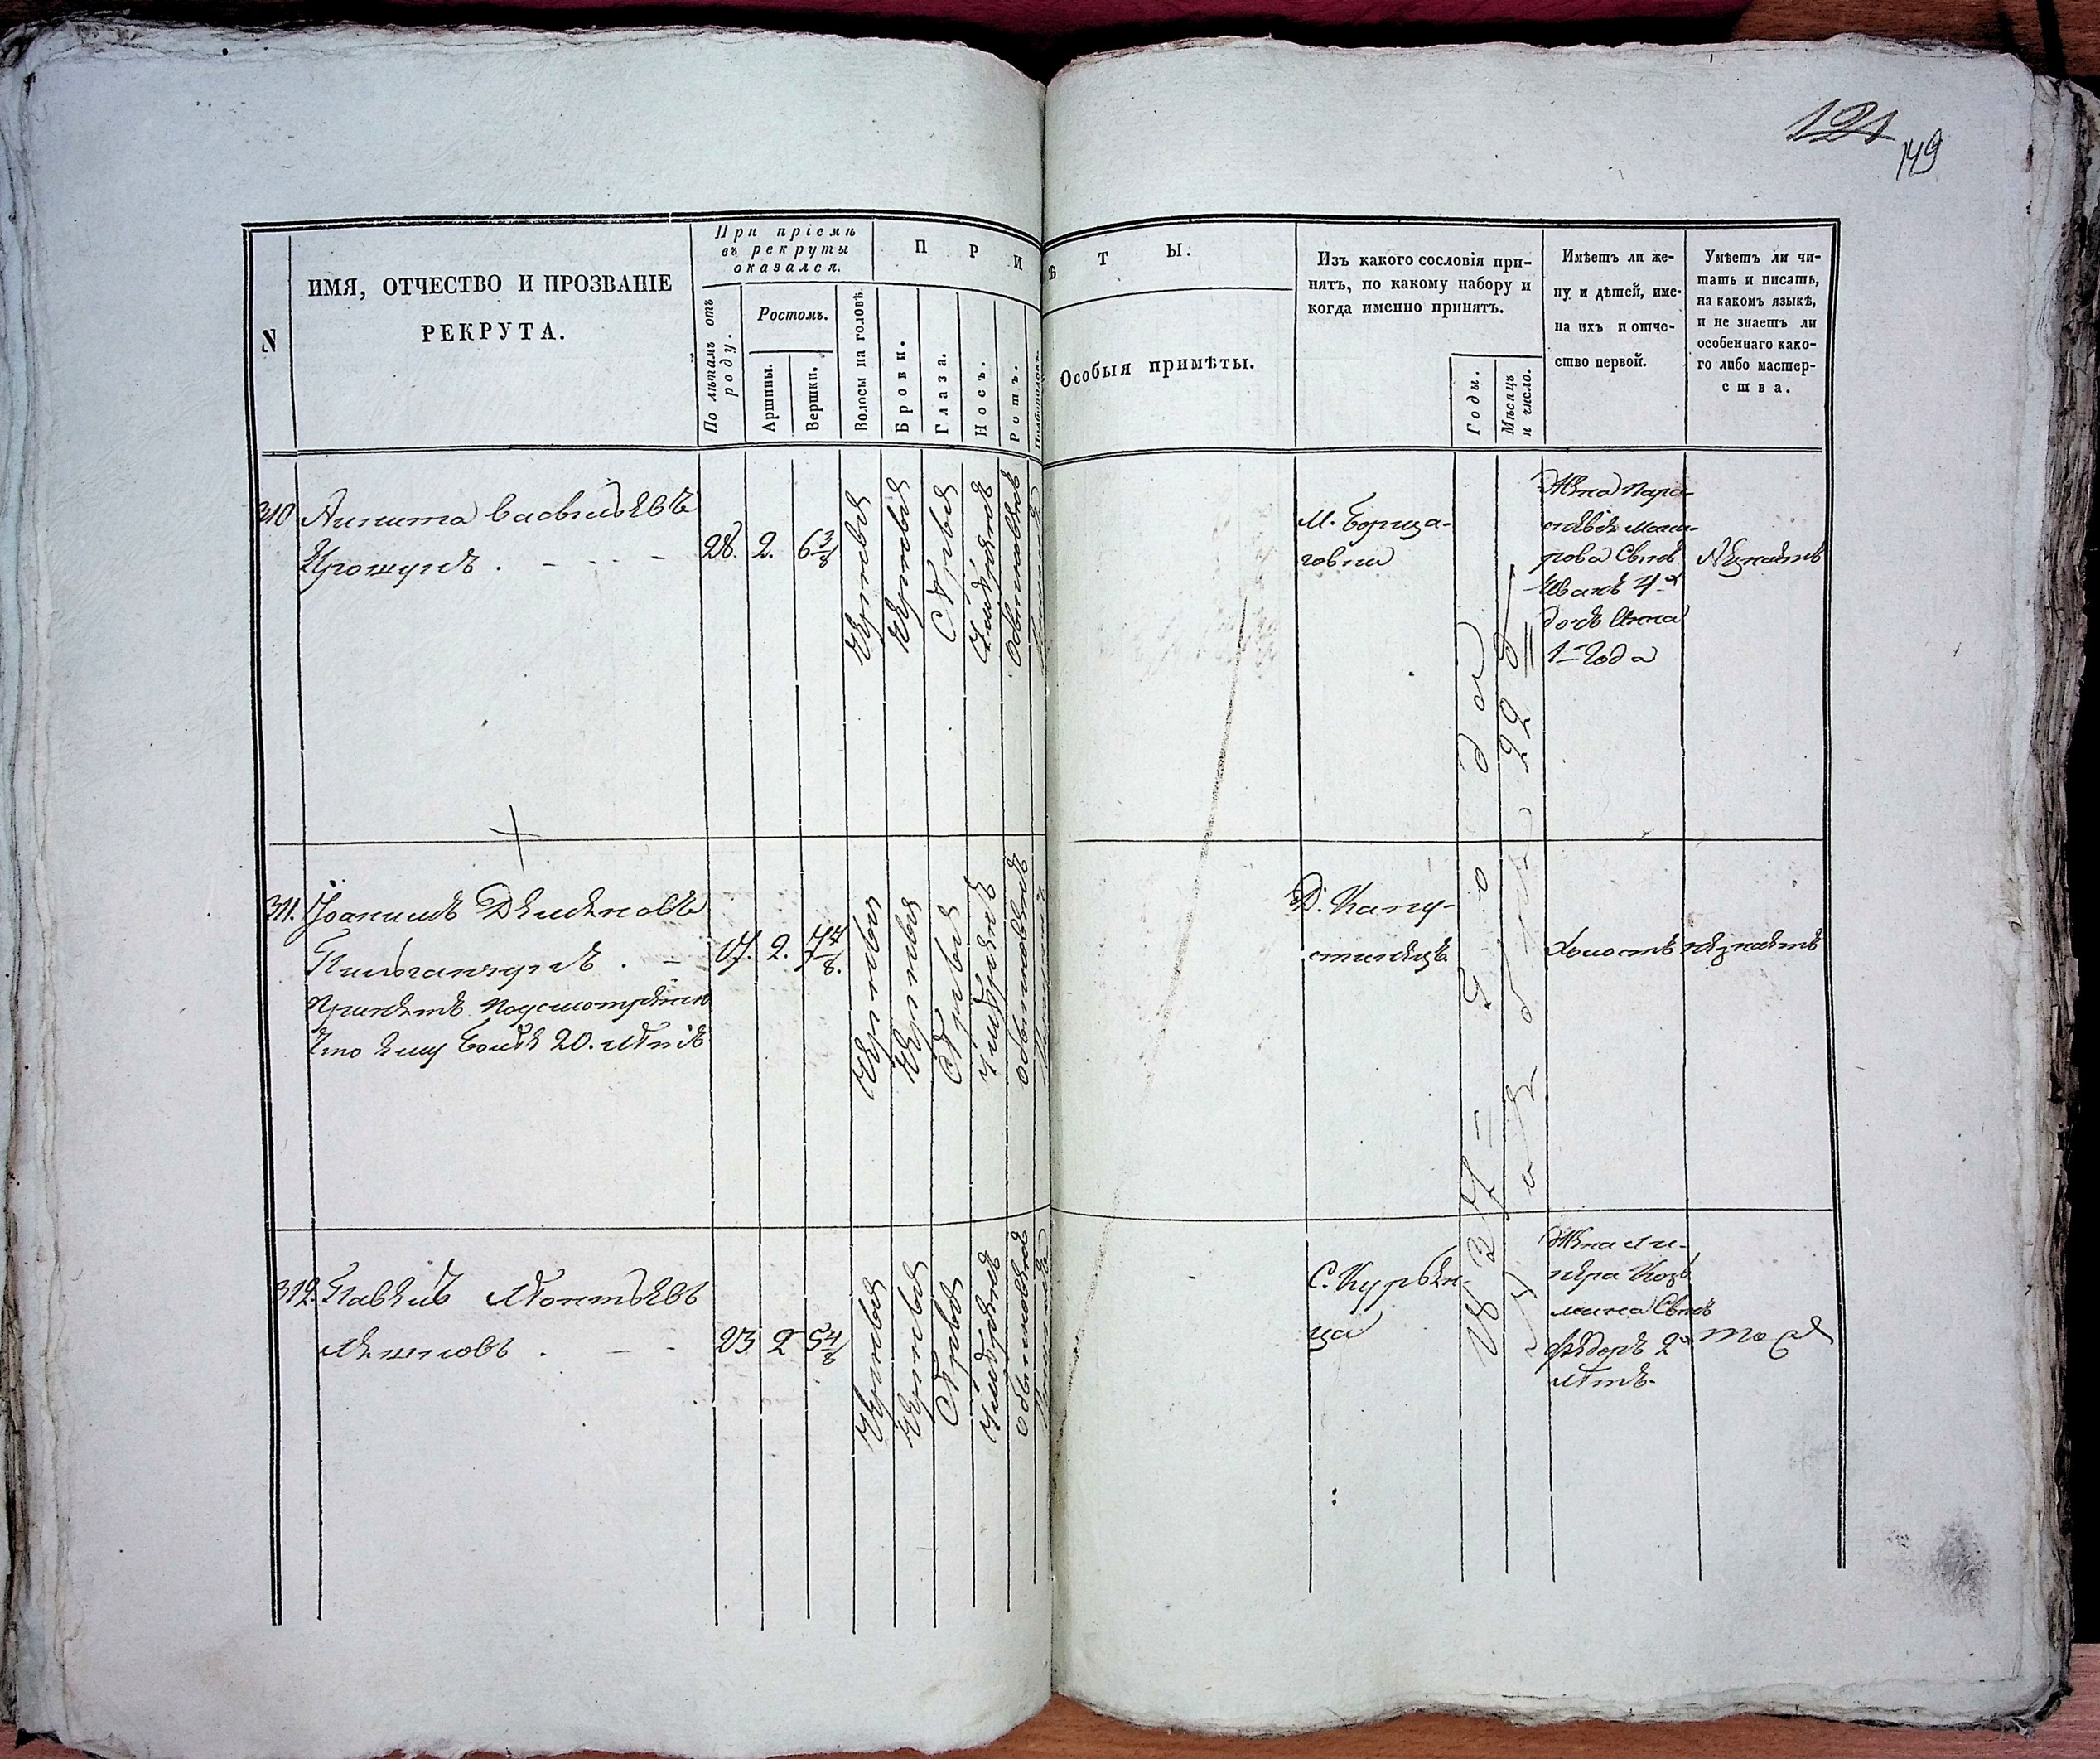 121
149
N
ИМЯ, ОТЧЕСТВО И ПРОЗВАНІЕ
РЕКРУТА.
При пріемѣ
въ рекруты
оказался.
По лѣтамъ отъ
роду.
Ростомъ.
Аршины.
Вершки.
П Р И
Волосы на головѣ.
Брови.
Глаза.
Носъ.
Ротъ.
Подбородокъ.
Ѣ Т Ы.
Особыя примѣты.
Изъ какого сословія при-
нятъ, по какому набору и
когда именно принятъ.
Годы.
Мѣсяцъ
и число.
Имѣетъ ли же-
ну и дѣтей, име-
на ихъ и отче-
ство первой.
Умѣетъ ли чи-
тать и писать,
на какомъ языкѣ,
и не знаетъ ли
особеннаго како-
го либо мастер-
ства.
310
Никита Васильевъ
28. 2. 6 3/8
Черныя
Черныя
Сѣрыя
Умѣренъ
Обыкновенъ
М. Борща-
говки
Жена Пара-
скѣвія Мака-
рова Сынъ
Иванъ 4
дочь Анна
1 года
Незнаетъ
311.
Іоакимъ Деменовъ
Принятъ по усмотрѣнію
Что ему болѣе 20. лѣтъ
17. 2. 7 4/8.
Черныя
Черныя
Сѣрыя
Умѣренъ
Обыкновенъ
Д. Капу-
стинецъ
Холостъ
незнаетъ
312.
Павелъ Леонтьевъ
23 2 5 4/8
Черныя
Черныя
Сѣрыя
Умѣренъ
Обыкновенъ
С. Курьен-
ца
1827 =
года
22
Жена
Сынъ
Федоръ 2
лѣтъ.
то же